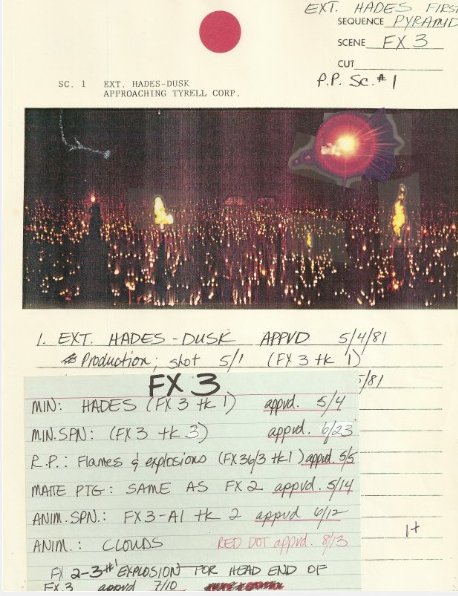 EXT. HADES FIRS
SEQUENCE PYRAMID
SCENE FX 3
CUT
P.P. SC.#1
SC. 1 EXT. HADES-DUSK
APPROACHING TYRELL CORP.
1. EXT. HADES-DUSK APPVD 5/4/81
Production: shot 5/1 (FX 3 tk 1)
5/81
FX 3
MIN: HADES (FX 3 tk 1) appvd. 5/4
MIN.SPN: (FX 3 tk 3) appvd. 6/23
R.P.: Flames & explosions (FX36/3 tk1) appvd 5/5
MATTE PTG: SAME AS FX 2 appvd. 5/14
ANIM.SPN: FX3-A1 tk 2 appvd 6/12
1+
ANIM.: CLOUDS RED DOT appvd. 8/13
FX 2-3 tk1 EXPLOSION FOR HEAD END OF
FX 3 appvd 7/10